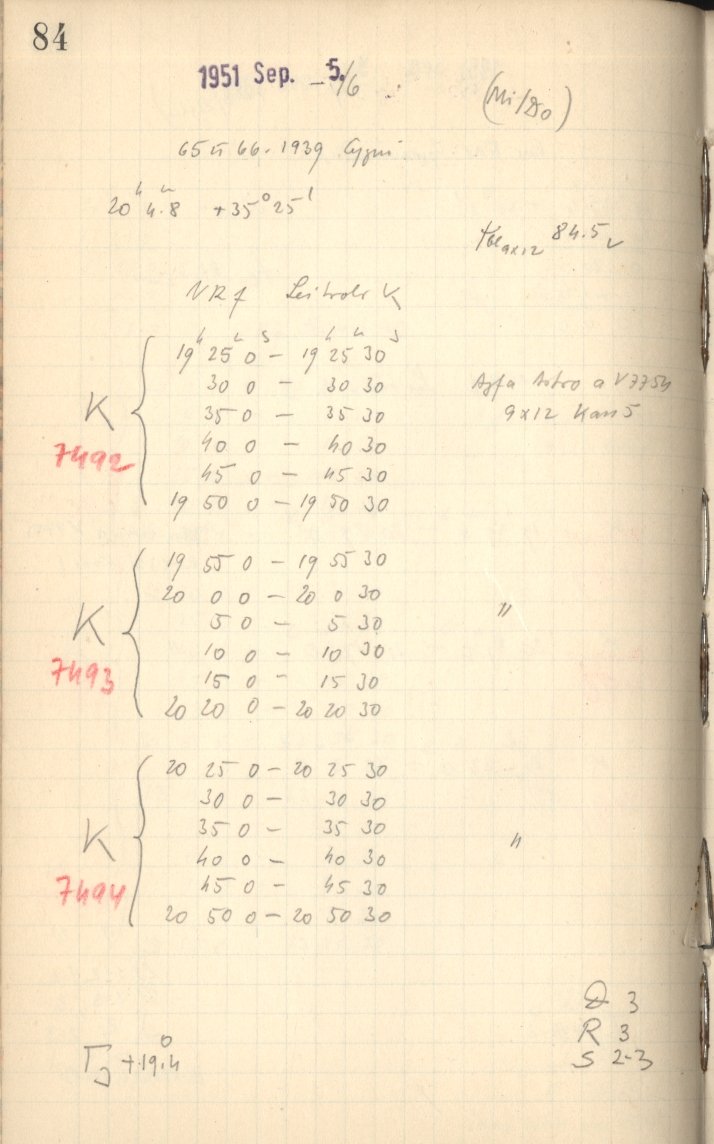 84
1951 Sep. - 5./6
(Mi/Do)
65 u 66. 1939 Cygni
20ʰ 4.8 +35°25'
9x12 84.5
Leitrohr K
19ʰ 25 0ˢ - 19ʰ 25 30ˢ
30 0 - 30 30
Agfa Astro a V7754
35 0 - 35 30
9x12 Kass 5
K
40 0 - 40 30
7492
45 0 - 45 30
19 50 0 - 19 50 30
19 55 0 - 19 55 30
20 0 0 - 20 0 30
"
K
5 0 - 5 30
10 0 - 10 30
7493
15 0 - 15 30
20 20 0 - 20 20 30
20 25 0 - 20 25 30
30 0 - 30 30
35 0 - 35 30
K
"
40 0 - 40 30
7494
45 0 - 45 30
20 50 0 - 20 50 30
3
R 3
S 2-3
+19.4°